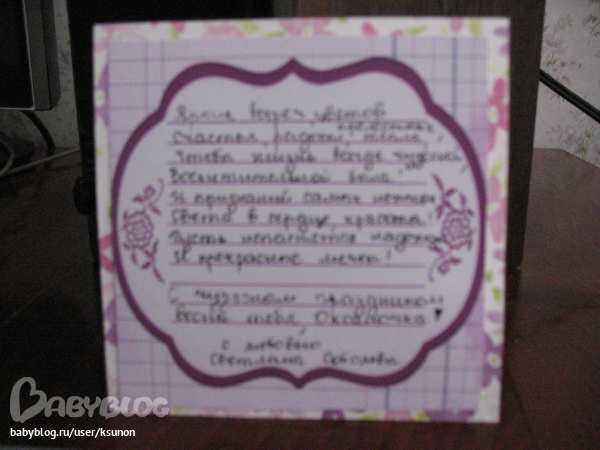 цветов
Счастья, радости, тепла,
Чтобы жизнь всегда
Восхитительной была!
И признаний самых нежных
Света в сердце, красоты!
Пусть исполнятся надежды
И прекрасные мечты!
С чудесным праздником
весны тебя Оксаночка!
с любовью
Светлана
BABYBLOG
babyblog.ru/user/ksunon